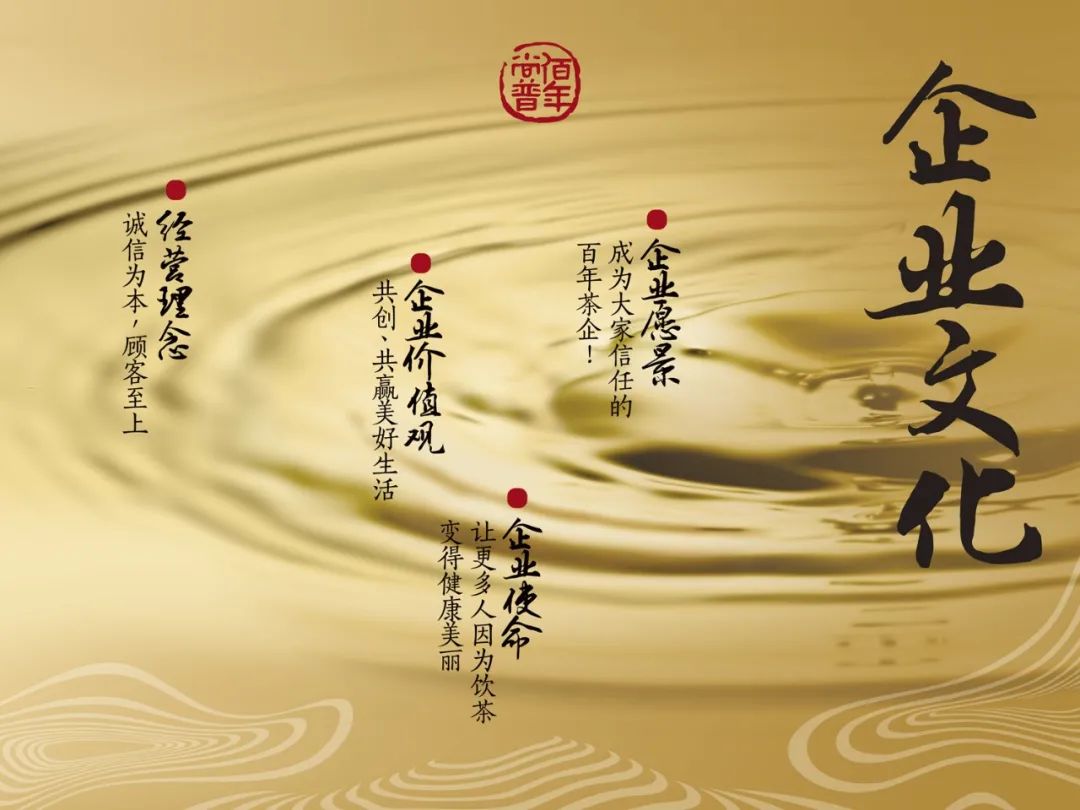 佰年
尚普
企业文化
企业愿景
成为大家信任的
百年茶企！
企业使命
让更多人因为饮茶
变得健康美丽
企业价值观
共创、共赢美好生活
经营理念
诚信为本，顾客至上